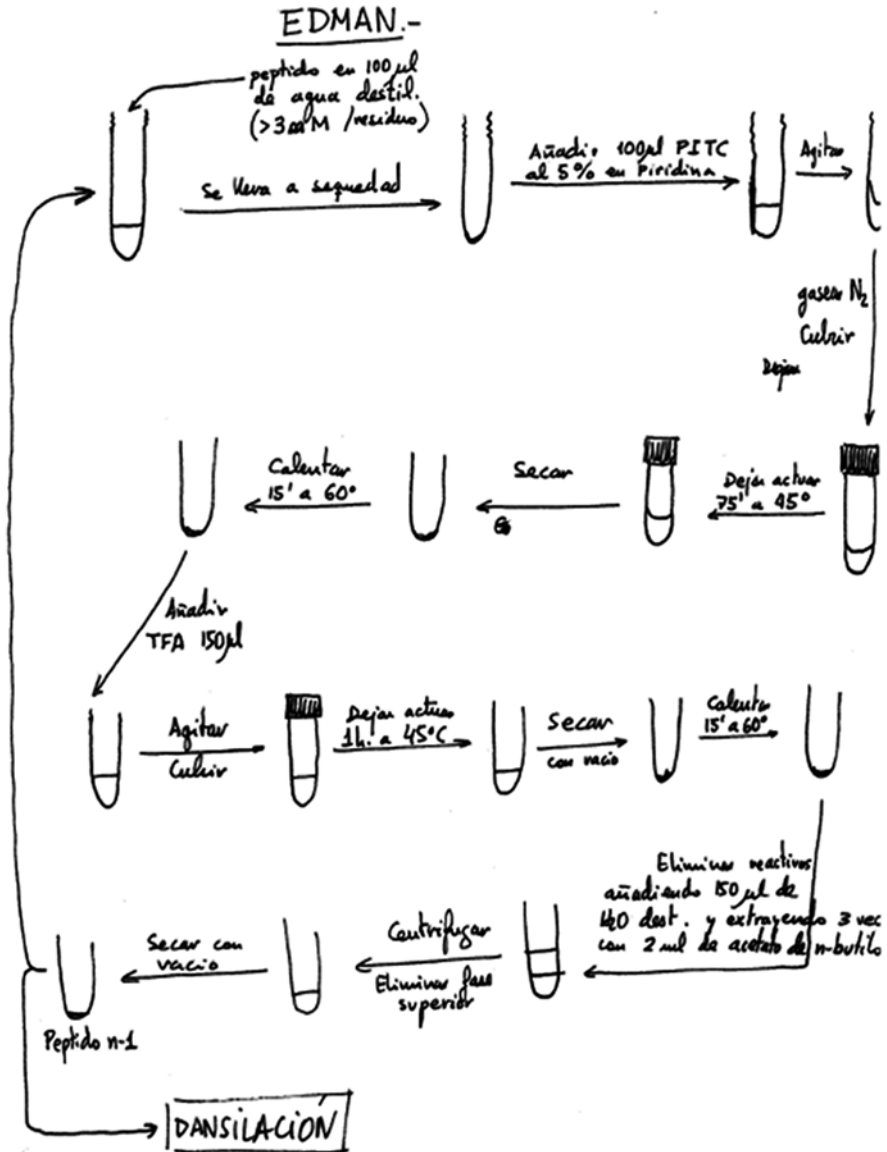 EDMAN.-
peptido en 100 µl
de agua destil.
(>3 mM /residuo)
Se lleva a sequedad
Añadir 100µl PITC
al 5% en Piridina
Agitar
gasear N2
Cubrir
Dejar
Dejar actuar
75' a 45°
Secar
Calentar
15' a 60°
Añadir
TFA 150µl
Agitar
Cubrir
Dejar actuar
1h. a 45°C
Secar
con vacio
Calentar
15' a 60°
Eliminar reactivos
añadiendo 150 µl de
H2O dest. y extrayendo 3 vec
con 2 ml de acetato de n-butilo
Centrifugar
Eliminar fase
superior
Secar con
vacio
Peptido n-1
DANSILACIÓN